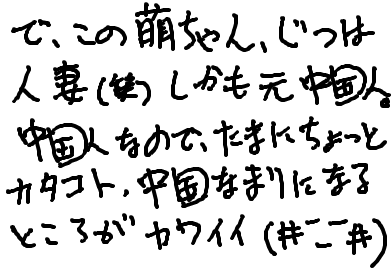 で、この萌ちゃん、じつは
人妻(笑)しかも元中国人。
中国人なので、たまにちょっと
カタコト、中国なまりになる
ところがカワイイ(#^^#)